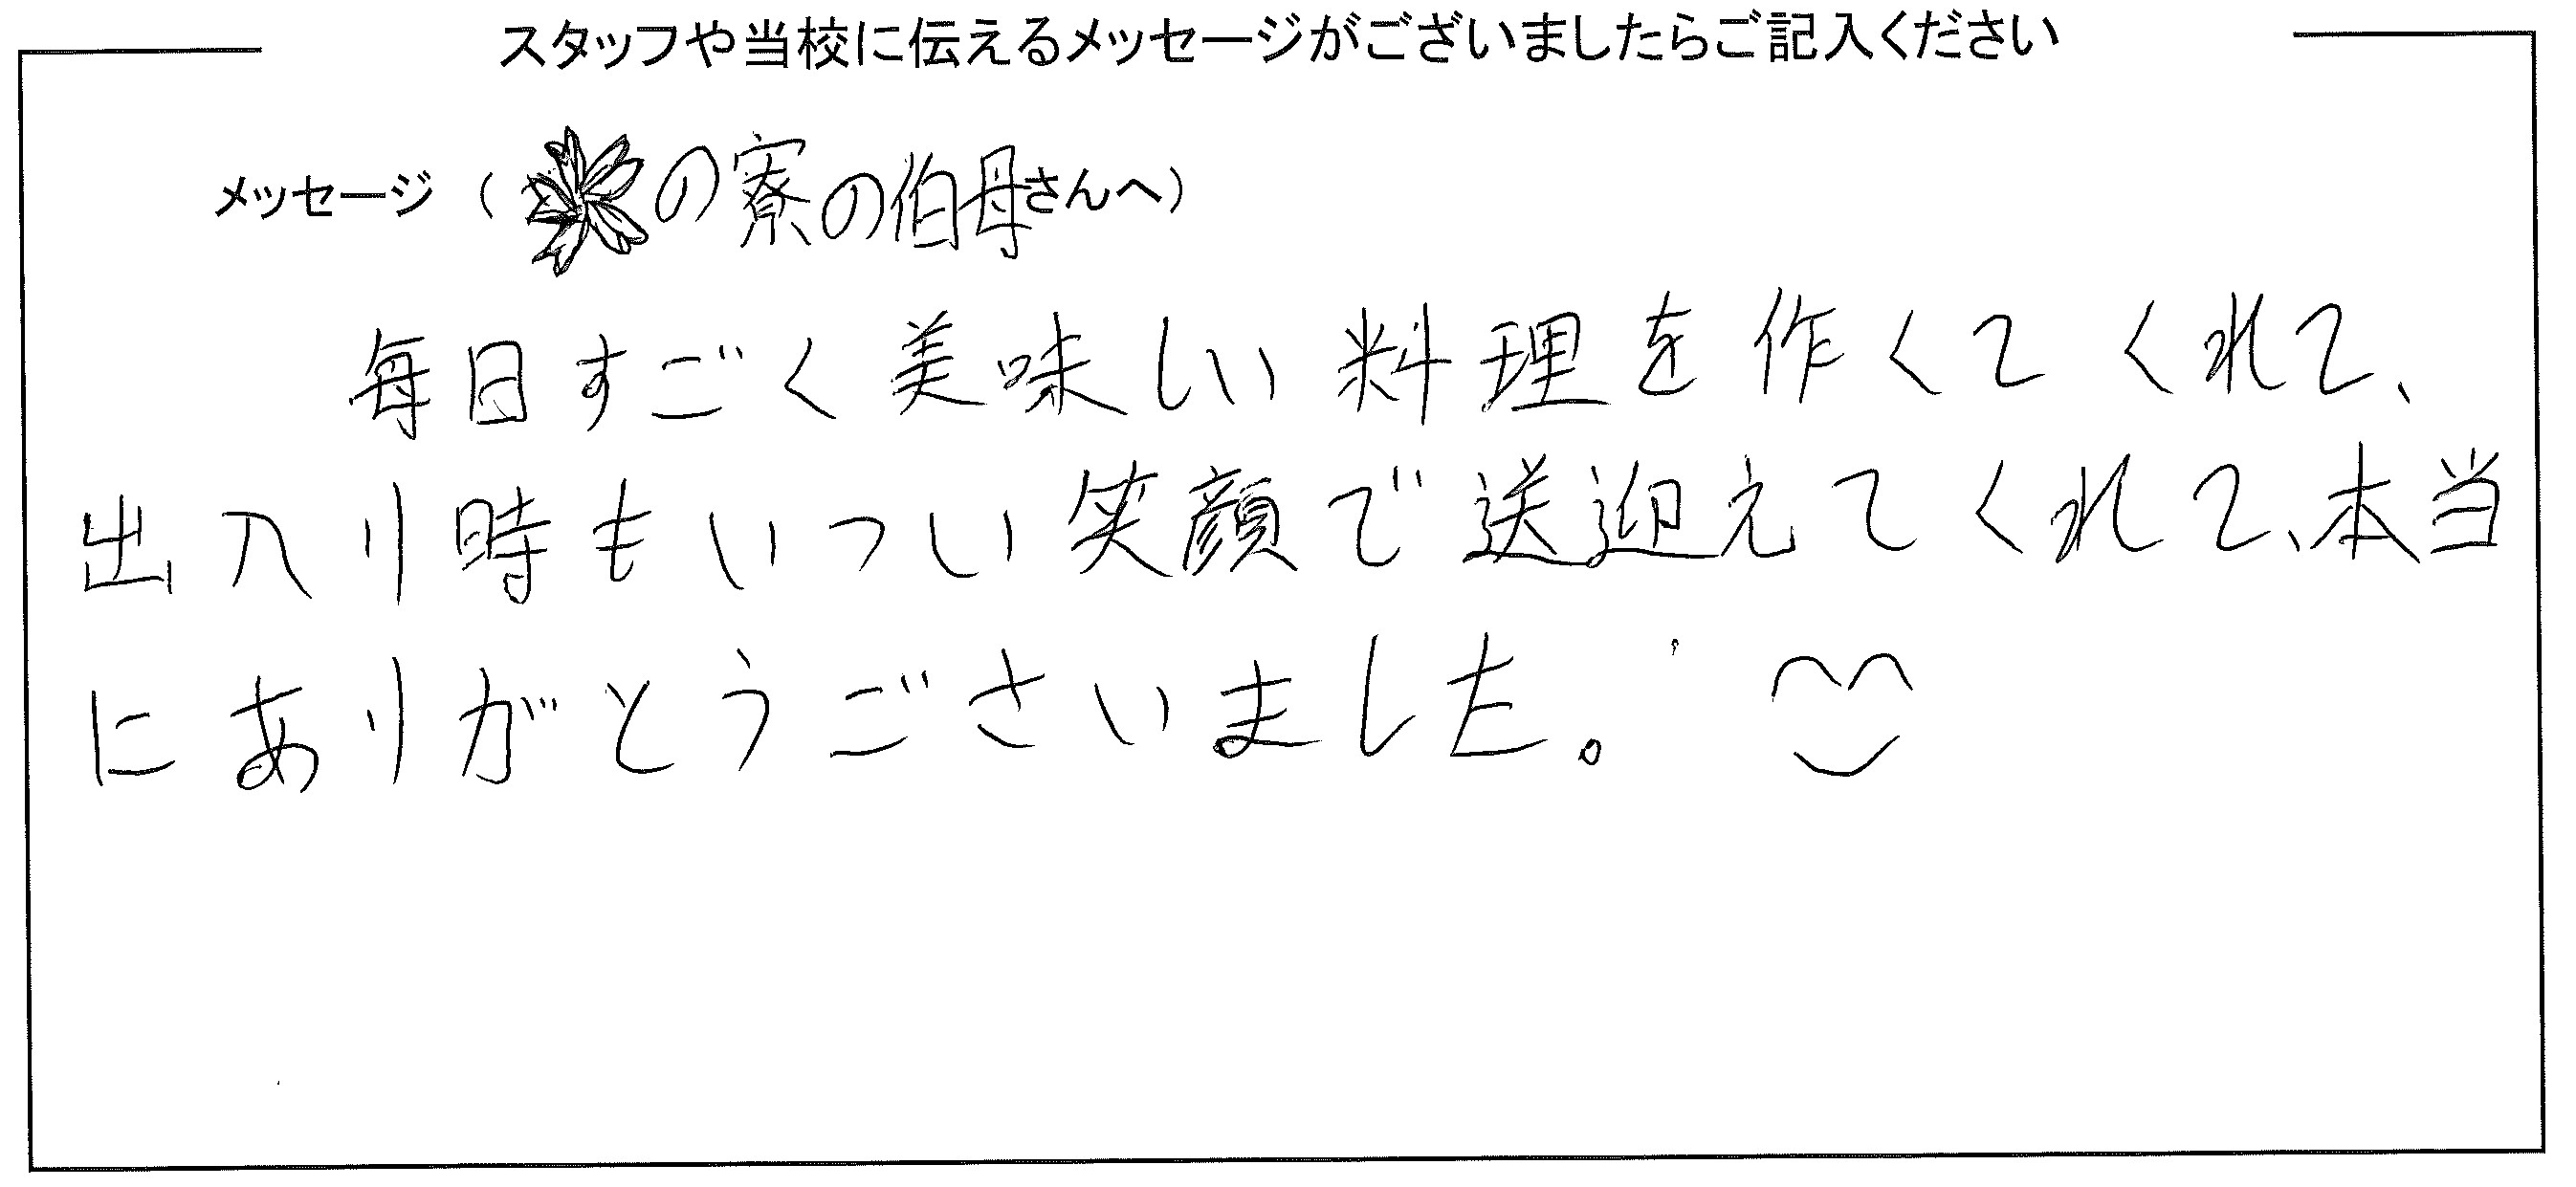 スタッフや当校に伝えるメッセージがございましたらご記入ください
メッセージ（の寮の伯母さんへ）
毎日すごく美味しい料理を作くてくれて、
出入り時もいつい笑顔で送迎えてくれて、本当
にありがとうございました。